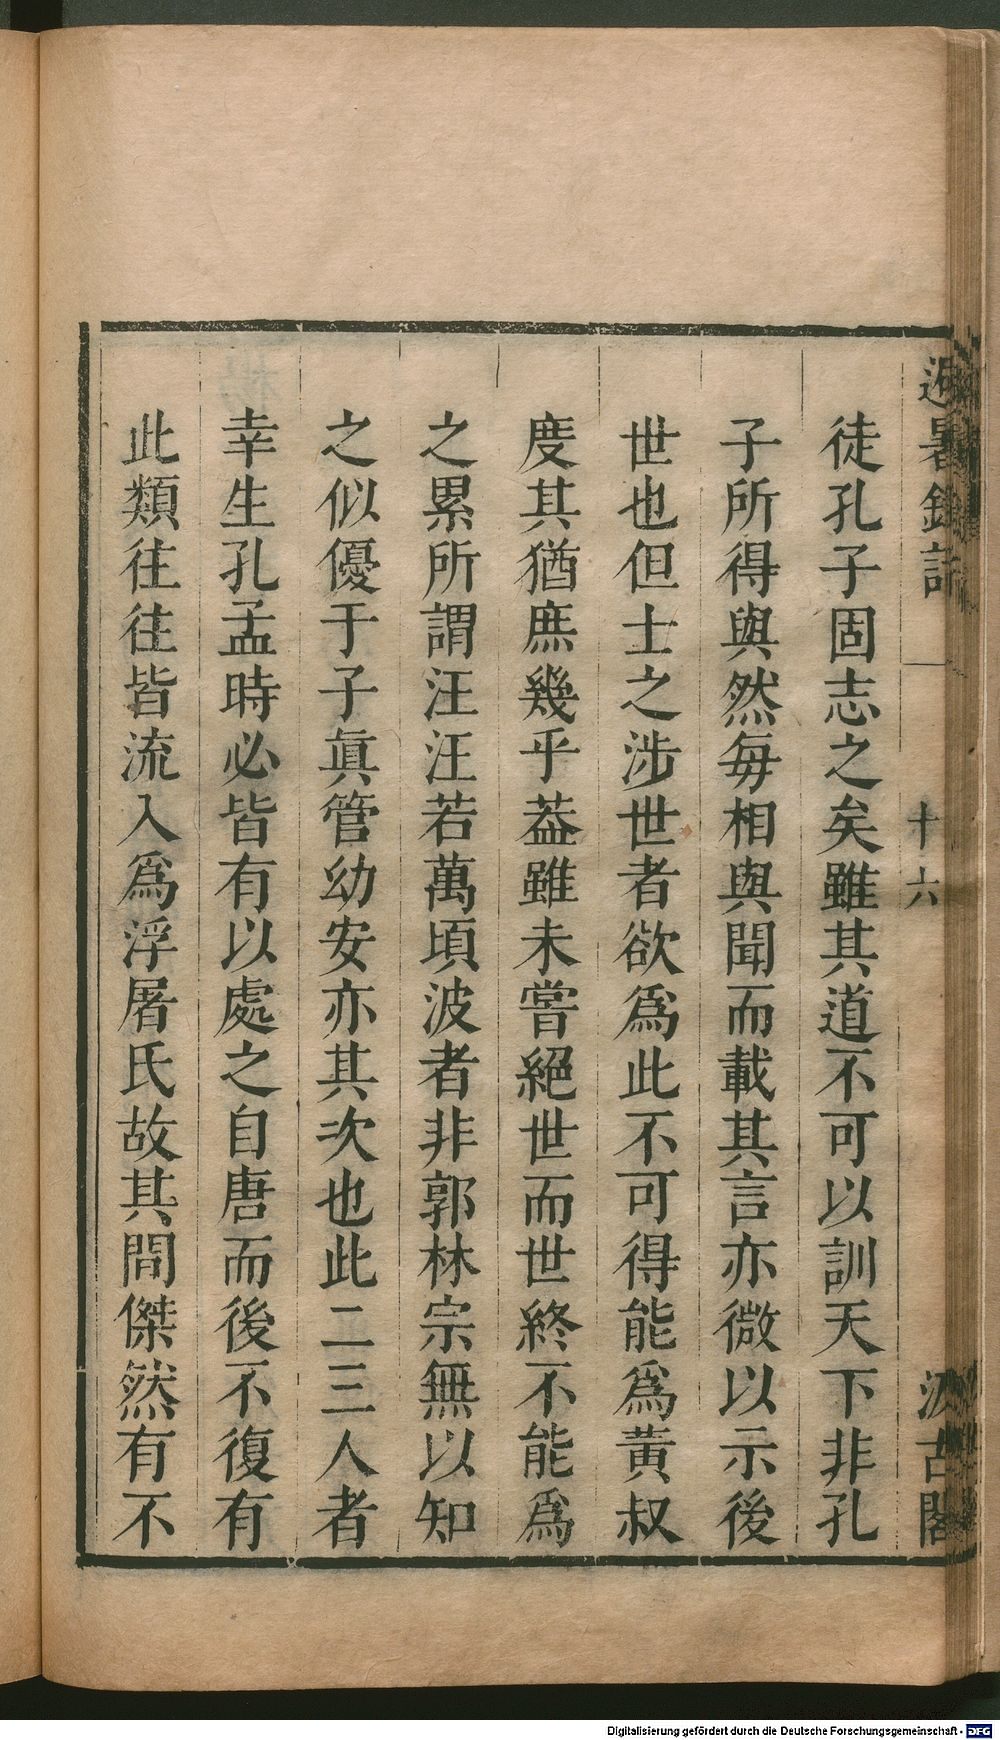 避暑錄話
一
十六
汲古閣
徒孔子固志之矣雖其道不可以訓天下非孔
子所得與然每相與聞而載其言亦微以示後
世也但士之涉世者欲爲此不可得能爲黃叔
度其猶庶幾乎葢雖未嘗絕世而世終不能爲
之累所謂汪汪若萬頃波者非郭林宗無以知
之似優于子眞管幼安亦其次也此二三人者
幸生孔孟時必皆有以處之自唐而後不復有
此類往往皆流入爲浮屠氏故其間傑然有不
Digitalisierung gefördert durch die Deutsche Forschungsgemeinschaft - DFG